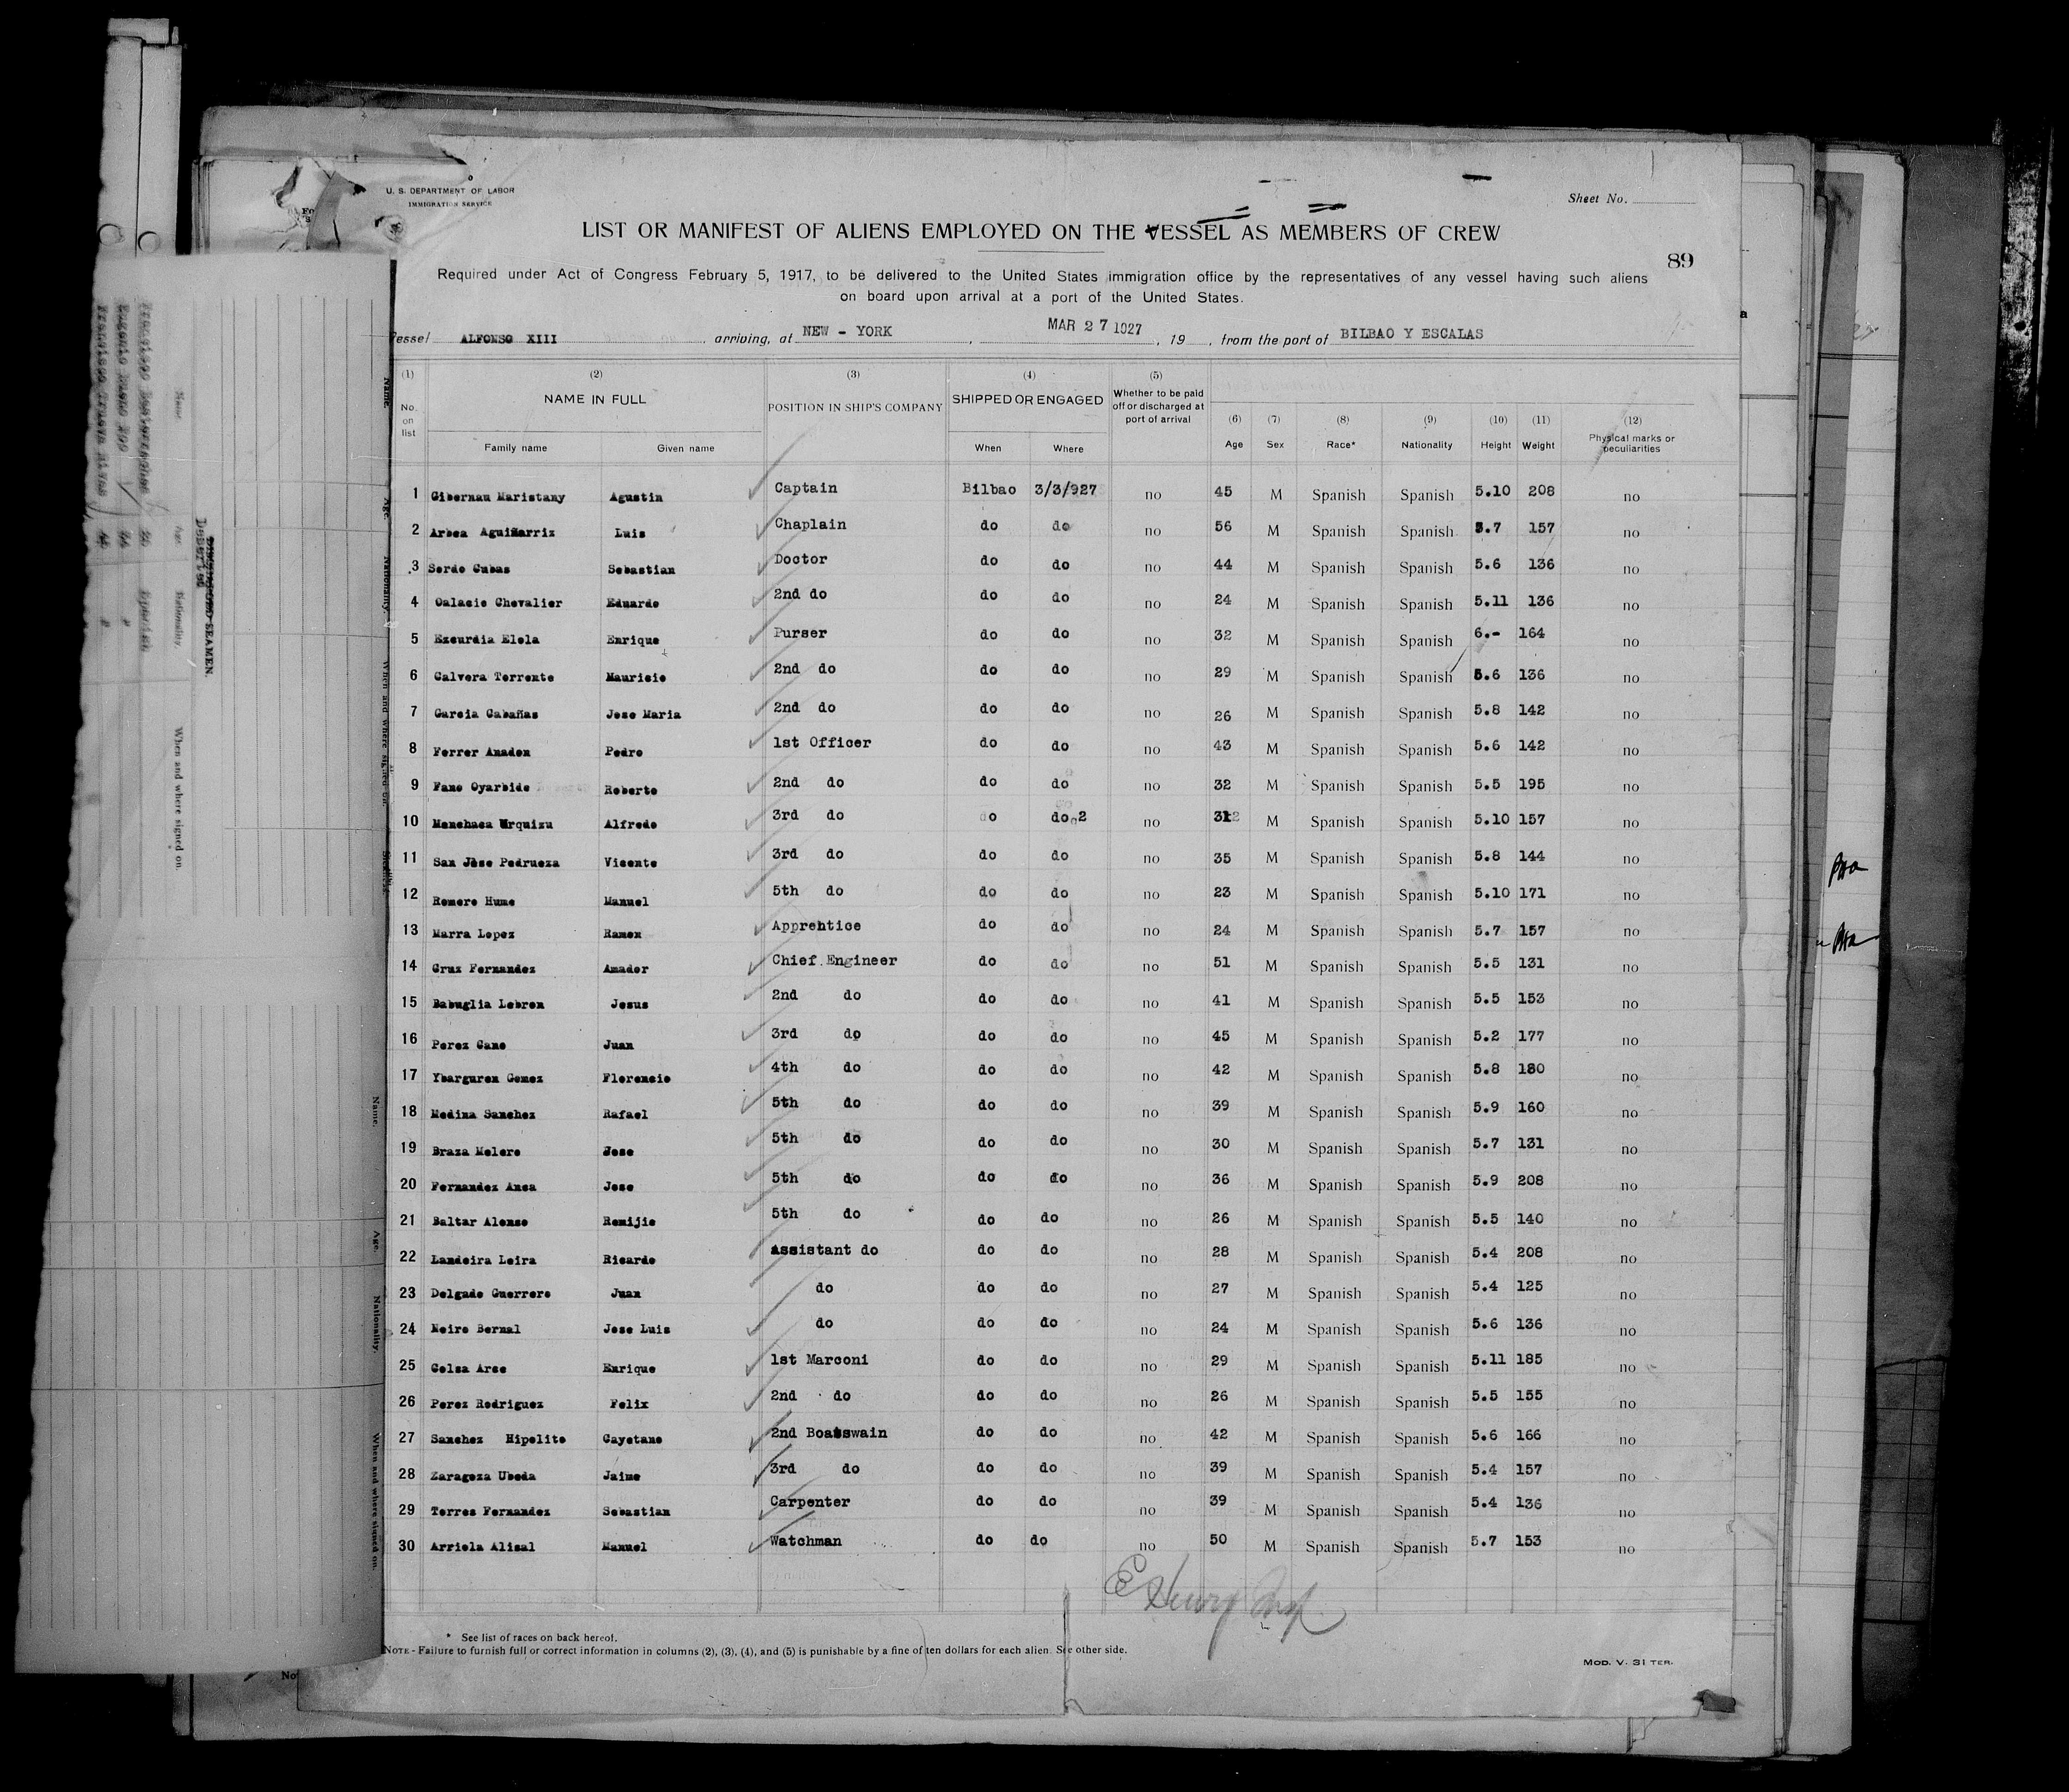 U. S. DEPARTMENT OF LABOR
IMMIGRATION SERVICE
Sheet No.
LIST OR MANIFEST OF ALIENS EMPLOYED ON THE VESSEL AS MEMBERS OF CREW
89
Required under Act of Congress February 5, 1917, to be delivered to the United States immigration office by the representatives of any vessel having such aliens
on board upon arrival at a port of the United States.
Vessel ALFONSO XIII, arriving, at NEW - YORK, MAR 27 1927, 19 , from the port of BILBAO Y ESCALAS
(1) (2) (3) (4) (5) (6) (7) (8) (9) (10) (11) (12)
No. on list NAME IN FULL Family name Given name POSITION IN SHIP'S COMPANY SHIPPED OR ENGAGED When Where Whether to be paid off or discharged at port of arrival Age Sex Race* Nationality Height Weight Physical marks or peculiarities
1 Gibernau Maristany Agustin Captain Bilbao 3/3/927 no 45 M Spanish Spanish 5.10 208 no
2 Arbea Aguiñarriz Luis Chaplain do do no 56 M Spanish Spanish 5.7 157 no
3 Serde Cubas Sebastian Doctor do do no 44 M Spanish Spanish 5.6 136 no
4 Oalacie Chevalier Eduardo 2nd do do do no 24 M Spanish Spanish 5.11 136 no
5 Ezcurdia Elola Enrique Purser do do no 32 M Spanish Spanish 6.- 164 no
6 Calvera Torrente Mauricio 2nd do do do no 29 M Spanish Spanish 5.6 136 no
7 Garcia Cabañas Jose Maria 2nd do do do no 26 M Spanish Spanish 5.8 142 no
8 Ferrer Amadon Pedro 1st Officer do do no 43 M Spanish Spanish 5.6 142 no
9 Fano Oyarbide Roberto 2nd do do do no 32 M Spanish Spanish 5.5 195 no
10 Menchaca Urquizu Alfredo 3rd do do do no M Spanish Spanish 5.10 157 no
11 San Jose Pedrueza Vicente 3rd do do do no 35 M Spanish Spanish 5.8 144 no
12 Romero Hume Manuel 5th do do do no 23 M Spanish Spanish 5.10 171 no
13 Marra Lopez Ramon Apprentice do do no 24 M Spanish Spanish 5.7 157 no
14 Cruz Fernandez Amador Chief Engineer do do no 51 M Spanish Spanish 5.5 131 no
15 Babuglia Lebron Jesus 2nd do do do no 41 M Spanish Spanish 5.5 153 no
16 Perez Cano Juan 3rd do do do no 45 M Spanish Spanish 5.2 177 no
17 Ybarguren Gomez Florencio 4th do do do no 42 M Spanish Spanish 5.8 180 no
18 Medina Sanchez Rafael 5th do do do no 39 M Spanish Spanish 5.9 160 no
19 Braza Melero Jose 5th do do do no 30 M Spanish Spanish 5.7 131 no
20 Fernandez Anca Jose 5th do do do no 36 M Spanish Spanish 5.9 208 no
21 Baltar Alonso Remijio 5th do do do no 26 M Spanish Spanish 5.5 140 no
22 Landeira Leira Ricardo Assistant do do do no 28 M Spanish Spanish 5.4 208 no
23 Delgado Guerrero Juan do do do no 27 M Spanish Spanish 5.4 125 no
24 Neiro Bernal Jose Luis do do do no 24 M Spanish Spanish 5.6 136 no
25 Celsa Arce Enrique 1st Marconi do do no 29 M Spanish Spanish 5.11 185 no
26 Perez Rodriguez Felix 2nd do do do no 26 M Spanish Spanish 5.5 155 no
27 Sanchez Hipolito Cayetano 2nd Boatswain do do no 42 M Spanish Spanish 5.6 166 no
28 Zaragoza Ubeda Jaime 3rd do do do no 39 M Spanish Spanish 5.4 157 no
29 Torres Fernandez Sebastian Carpenter do do no 39 M Spanish Spanish 5.4 136 no
30 Arriola Alisal Manuel Watchman do do no 50 M Spanish Spanish 5.7 153 no
E Henry Insp
* See list of races on back hereof.
NOTE - Failure to furnish full or correct information in columns (2), (3), (4), and (5) is punishable by a fine of ten dollars for each alien. See other side.
MOD. V. 31 TER.
Name. Age. Nationality. When and where signed on.
SEAMEN.
Name. Age. Nationality. When and where signed on.